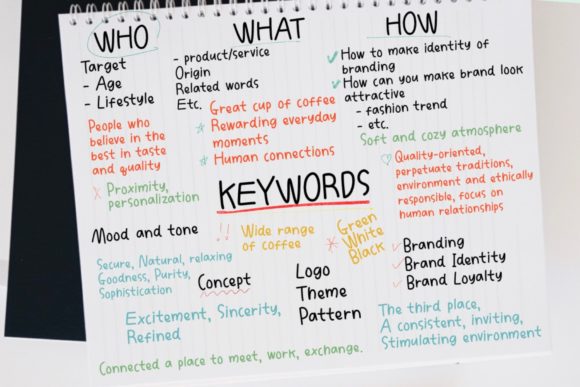 WHO
Target
- Age
- Lifestyle
People who
believe in the
best in taste
and quality
x Proximity,
personalization
WHAT
- product/service
Origin
Related words
Etc.
Great cup of coffee
* Rewarding everyday
moments
* Human connections
HOW
✓ How to make identity of
branding
✓ How can you make brand look
attractive
- fashion trend
- etc.
Soft and cozy atmosphere
♡ Quality-oriented,
perpetuate traditions,
environment and ethically
responsible, focus on
human relationships
KEYWORDS
Mood and tone
Secure, Natural, relaxing
Goodness, Purity,
Sophistication
!! Wide range
of coffee
* Green
White
Black
Concept
Logo
Theme
Pattern
✓ Branding
✓ Brand Identity
✓ Brand Loyalty
Excitement, Sincerity,
Refined
The third place,
A consistent, inviting,
Stimulating environment
Connected a place to meet, work, exchange.